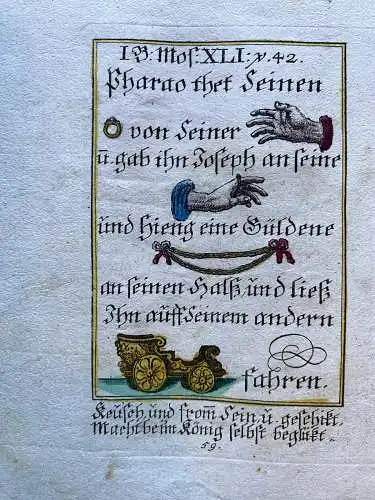 I B: Mos: XLI: v. 42.
Pharao thet Seinen
von Seiner
ū gab ihn Joseph an seine
und Hieng eine Güldene
an seinen Halß und ließ
Ihn auff Seinem andern
fahren.
Keusch, und from̄ Sein, u. geschikt,
Macht beim König selbst beglükt.
59.